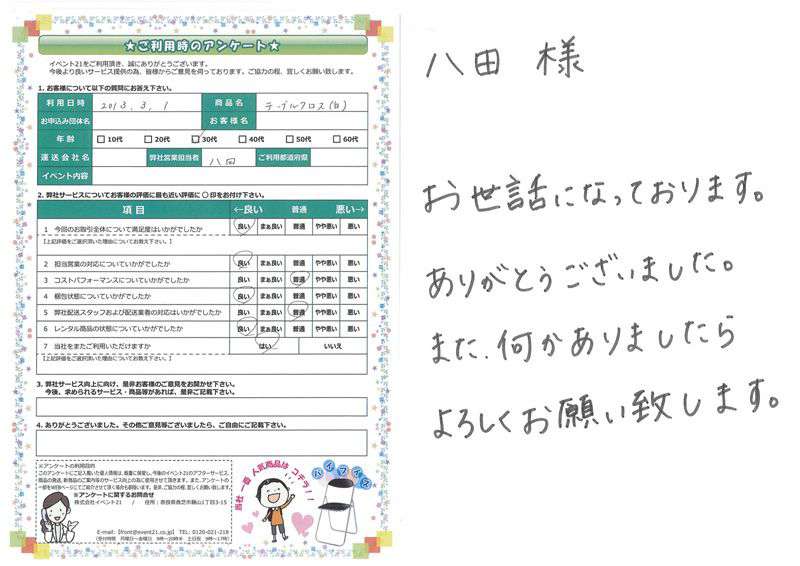 ★ご利用時のアンケート★
イベント21をご利用頂き、誠にありがとうございます。
今後より良いサービス提供の為、皆様からご意見を伺っております。ご協力の程、宜しくお願い致します。
1. お客様について以下の質問にお答え下さい。
利用日時 2013. 3. 1 商品名 テーブルクロス(白)
お申込み団体名 お客様名
年齢 □10代 □20代 ☑30代 □40代 □50代 □60代
運送会社名 弊社営業担当者 八田 ご利用都道府県
イベント内容
2. 弊社サービスについてお客様の評価に最も近い評価に 〇 印をお付け下さい。
項目 ←良い 普通 悪い→
1 今回のお取引全体について満足度はいかがでしたか 良い まぁ良い 普通 やや悪い 悪い
【上記評価をご選択頂いた理由についてお教え下さい。】
2 担当営業の対応についていかがでしたか 良い まぁ良い 普通 やや悪い 悪い
3 コストパフォーマンスについていかがでしたか 良い まぁ良い 普通 やや悪い 悪い
4 梱包状態についていかがでしたか 良い まぁ良い 普通 やや悪い 悪い
5 弊社配送スタッフおよび配送業者の対応はいかがでしたか 良い まぁ良い 普通 やや悪い 悪い
6 レンタル商品の状態についていかがでしたか 良い まぁ良い 普通 やや悪い 悪い
7 当社をまたご利用いただけますか はい いいえ
【上記評価をご選択頂いた理由についてお教え下さい。】
3. 弊社サービス向上に向け、是非お客様のご意見をお聞かせ下さい。
今後、求められるサービス・商品等があれば、是非ご記載下さい。
4. ありがとうございました。その他ご意見等ございましたら、ご自由にご記載下さい。
※アンケートの利用目的
このアンケートにご記入頂いた個人情報は、厳重に保管し、今後のイベント21のアフターサービス、
商品の発送、新商品のご案内等のサービスの向上の為に使用させて頂きます。また、アンケートの
※アンケートに関するお問合せ
株式会社イベント21 / 住所:奈良県香芝市鎌山1丁目3-15
E-mail:[front@event21.co.jp] TEL:0120-021-218
(受付時間 月曜日～金曜日 9時～20時半 土日祝 9時～17時)
当社一番人気商品はコチラ!!
パイプイス
八田 様
お世話になっております。
ありがとうございました。
また、何かありましたら
よろしくお願い致します。